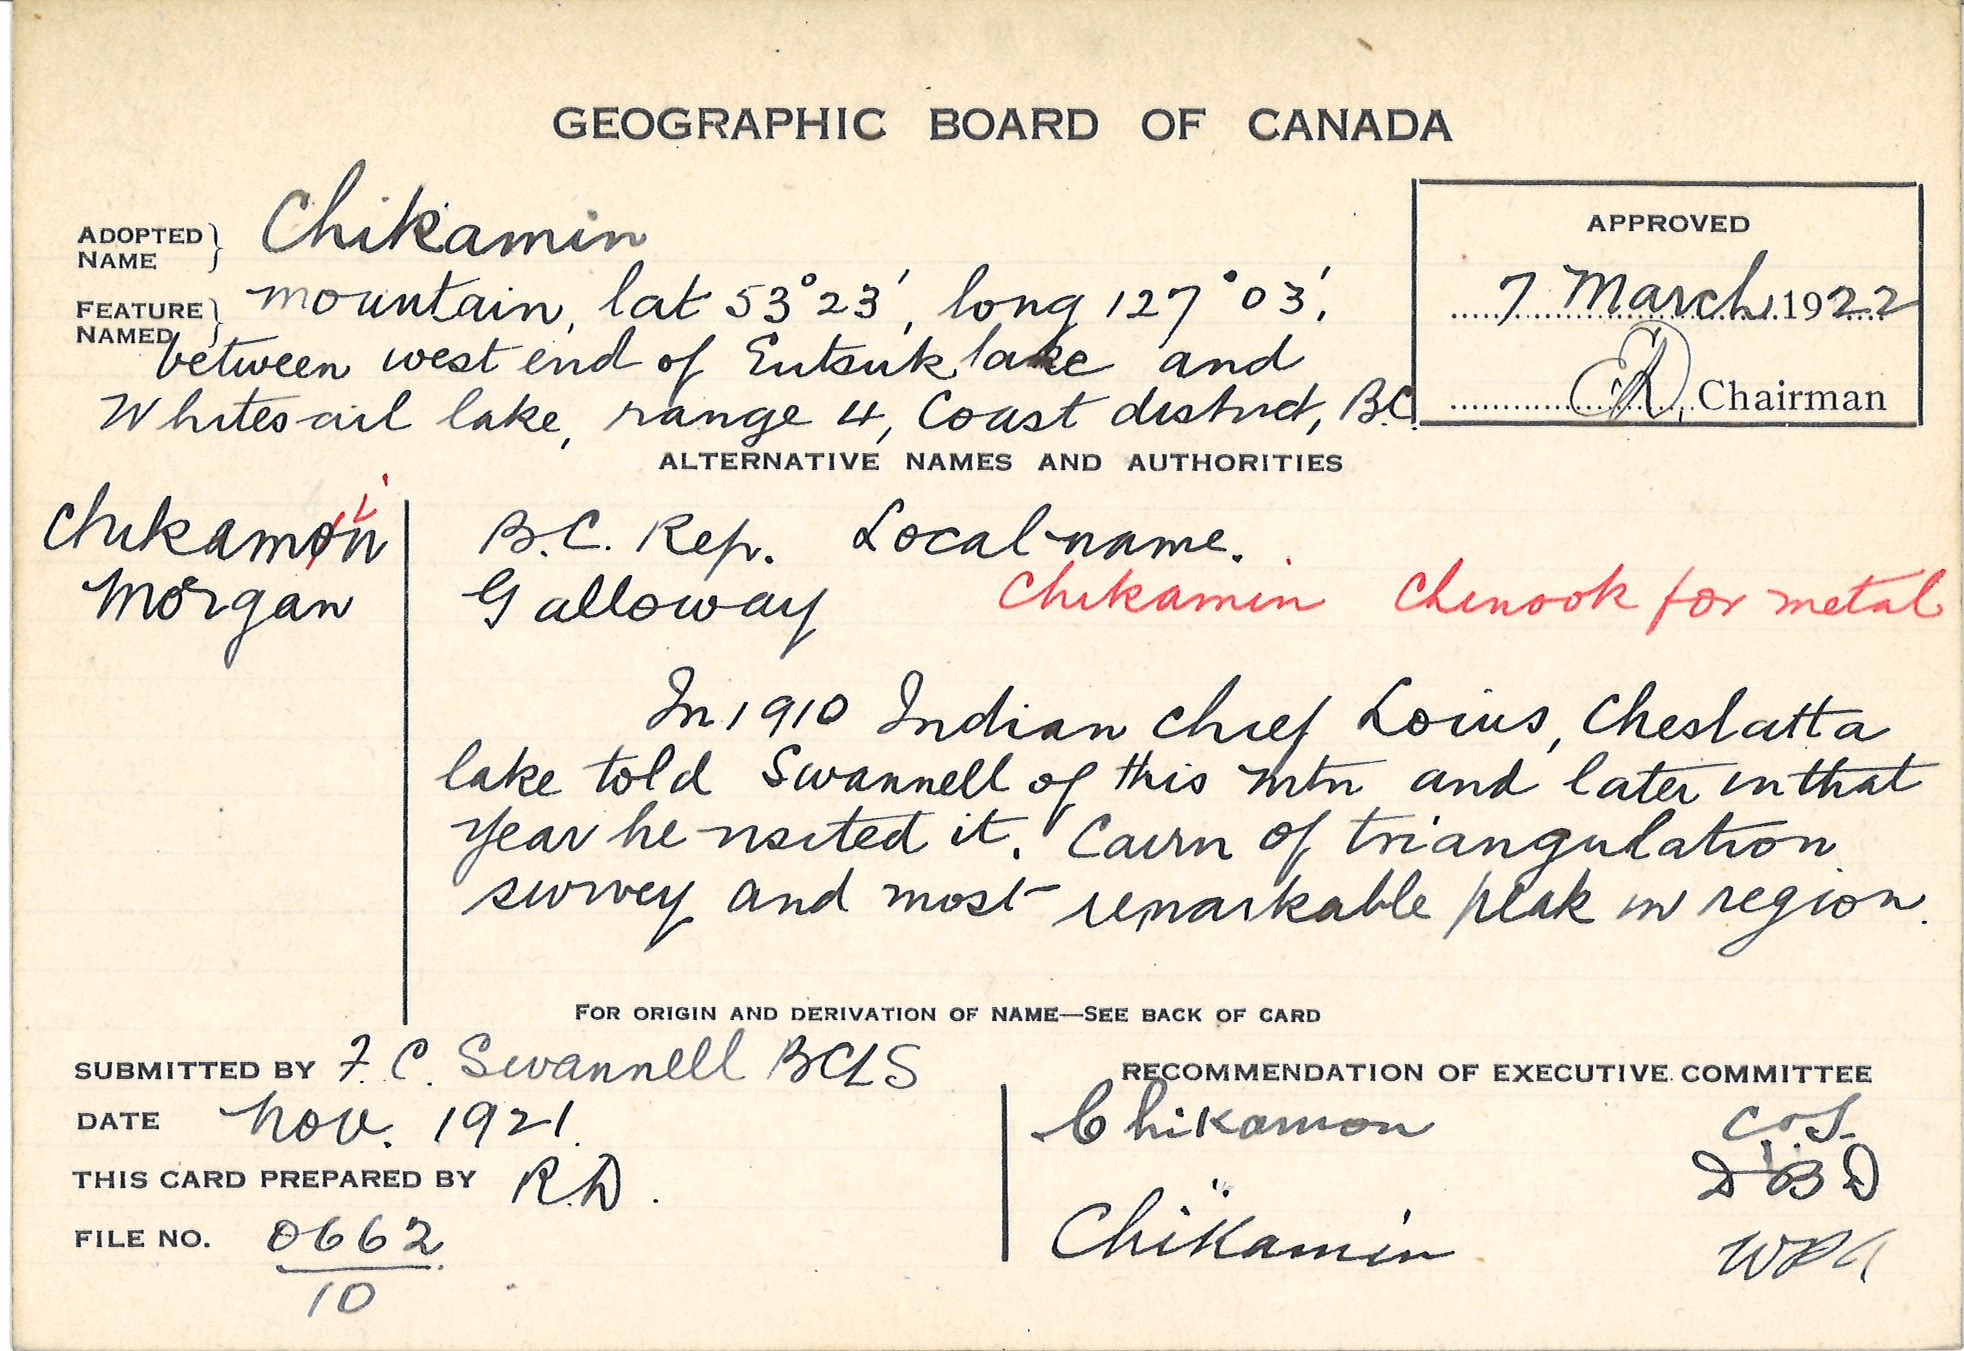 GEOGRAPHIC BOARD OF CANADA
ADOPTED NAME } Chikamin
FEATURE NAMED } mountain, lat 53°23', long 127°03',
between west end of Eutsuk lake and
Whitesail lake, range 4, Coast district, B.C.
APPROVED
7 March 1922
Chairman
ALTERNATIVE NAMES AND AUTHORITIES
Chikamon i B.C. Rep. Local name.
Morgan Galloway Chikamin Chinook for metal
In 1910 Indian chief Loius, Cheslatta
lake told Swannell of this mtn and later in that
year he visited it. Cairn of triangulation
survey and most remarkable peak in region.
FOR ORIGIN AND DERIVATION OF NAME—SEE BACK OF CARD
SUBMITTED BY F. C. Swannell BCLS
DATE Nov. 1921.
THIS CARD PREPARED BY R.D.
FILE NO. 0662
10
RECOMMENDATION OF EXECUTIVE COMMITTEE
Chikamon
" DBD
Chikamin